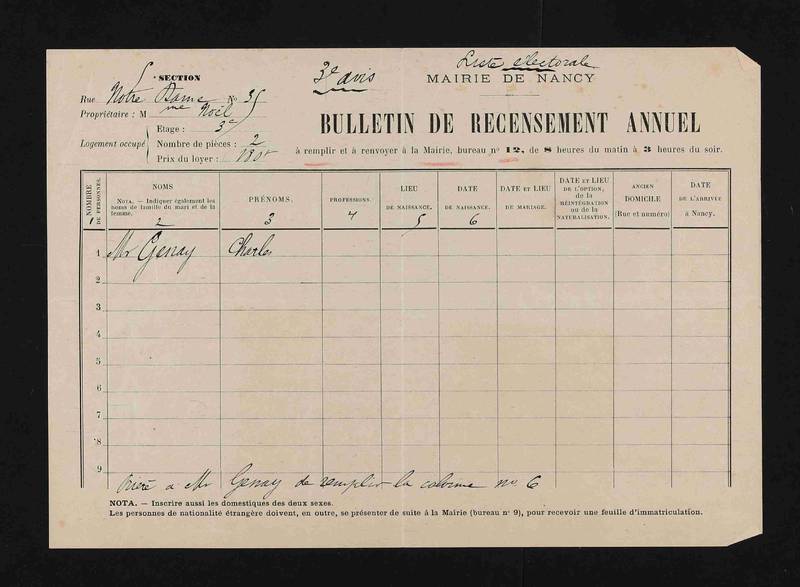 Liste électorale
5 SECTION
3e avis
MAIRIE DE NANCY
Rue Notre Dame No 35
Propriétaire : M me Noël
Logement occupé
Etage : 3e
Nombre de pièces : 2
Prix du loyer : 180f
BULLETIN DE RECENSEMENT ANNUEL
à remplir et à renvoyer à la Mairie, bureau no 12, de 8 heures du matin à 3 heures du soir.
NOMBRE DE PERSONNES.
NOMS
NOTA. — Indiquer également les noms de famille du mari et de la femme.
PRÉNOMS.
PROFESSIONS.
LIEU DE NAISSANCE.
DATE DE NAISSANCE.
DATE ET LIEU DE MARIAGE.
DATE ET LIEU DE L'OPTION, de la RÉINTÉGRATION ou de la NATURALISATION.
ANCIEN DOMICILE (Rue et numéro)
DATE DE L'ARRIVÉE à Nancy.
1 2 3 4 5 6
1 Mr Genay Charles
2
3
4
5
6
7
8
9
Prière a Mr Genay de remplir la colonne no 6
NOTA. — Inscrire aussi les domestiques des deux sexes.
Les personnes de nationalité étrangère doivent, en outre, se présenter de suite à la Mairie (bureau no 9), pour recevoir une feuille d'immatriculation.